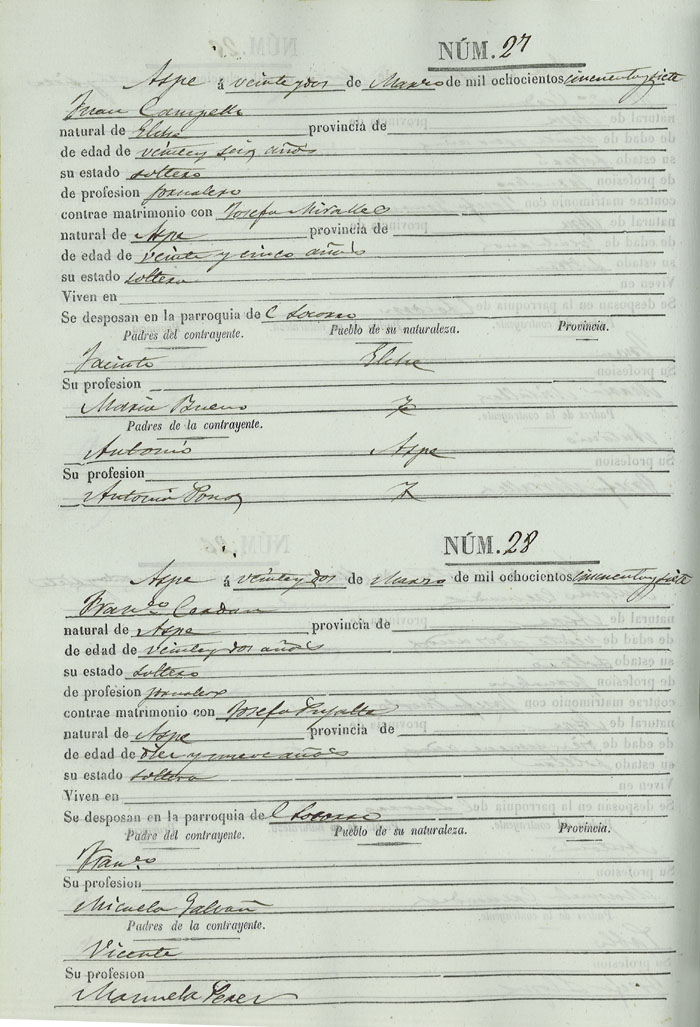 NÚM. 27
Aspe á veinte y dos de Marzo de mil ochocientos cincuenta y siete
Juan Campello
natural de Elche provincia de
de edad de veinte y seis años
su estado soltero
de profesion jornalero
contrae matrimonio con Josefa Miralles
natural de Aspe provincia de
de edad de veinte y cinco años
su estado soltera
Viven en
Se desposan en la parroquia de l Socorro
Padres del contrayente. Pueblo de su naturaleza. Provincia.
Jacinto Elche
Su profesion
Maria Bueno
Padres de la contrayente.
Antonio Aspe
Su profesion
Antonia
NÚM. 28
Aspe á veinte y dos de Marzo de mil ochocientos cincuenta y siete
Franco Cerdan
natural de Aspe provincia de
de edad de veinte y dos años
su estado soltero
de profesion jornalero
contrae matrimonio con Josefa Pujalte
natural de Aspe provincia de
de edad de diez y nueve años
su estado soltera
Viven en
Se desposan en la parroquia de l Socorro
Padre del contrayente. Pueblo de su naturaleza. Provincia.
Franco
Su profesion
Micaela Galvañ
Padres de la contrayente.
Vicente
Su profesion
Manuela Perez